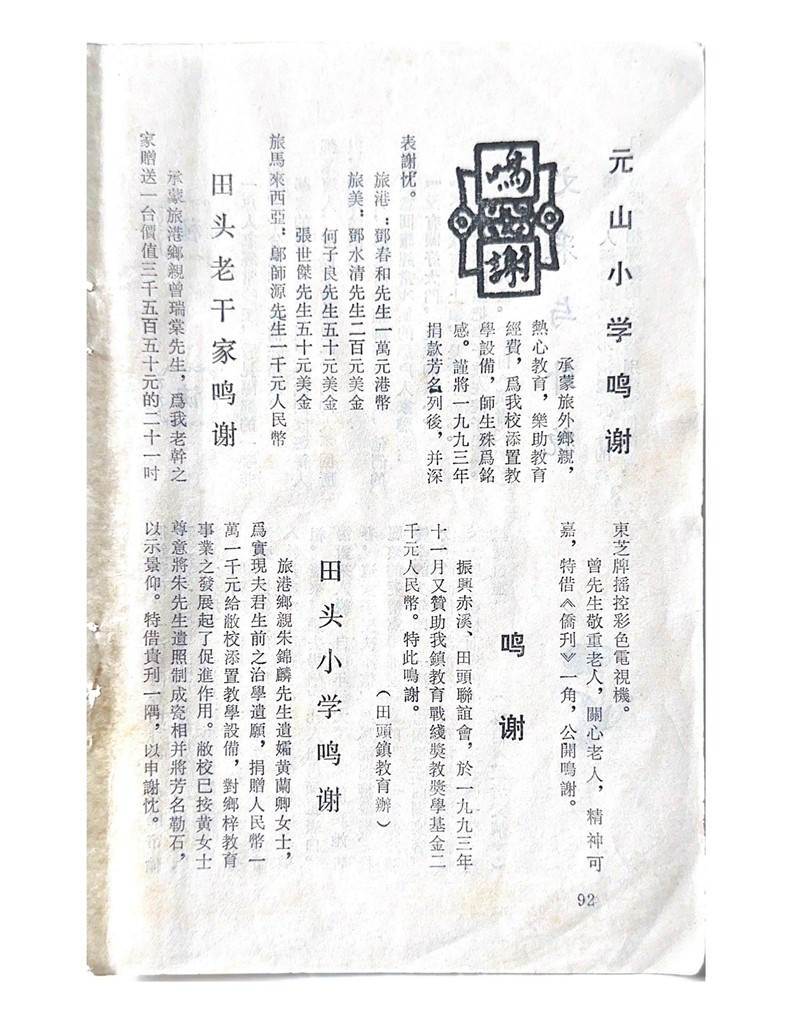 元山小学鸣谢
鳴謝
承蒙旅外鄉親，
熱心教育，樂助教育
經費，爲我校添置教
學設備，師生殊爲銘
感。謹將一九九三年
捐款芳名列後，并深
表謝忱。
旅港：鄧春和先生一萬元港幣
旅美：鄧水清先生二百元美金
何子良先生五十元美金
張世傑先生五十元美金
旅馬來西亞：鄔師源先生一千元人民幣
田头老干家鸣谢
承蒙旅港鄉親曾瑞棠先生，爲我老幹之
家贈送一台價值三千五百五十元的二十一吋
東芝牌搖控彩色電視機。
曾先生敬重老人，關心老人，精神可
嘉，特借《僑刊》一角，公開鳴謝。
鸣谢
振興赤溪、田頭聯誼會，於一九九三年
十一月又贊助我鎮教育戰綫獎教獎學基金二
千元人民幣。特此鳴謝。
（田頭鎮教育辦）
田头小学鸣谢
旅港鄉親朱錦麟先生遺孀黃蘭卿女士，
爲實現夫君生前之治學遺願，捐贈人民幣一
萬一千元給敝校添置教學設備，對鄉梓教育
事業之發展起了促進作用。敝校已按黃女士
尊意將朱先生遺照制成瓷相并將芳名勒石，
以示景仰。特借貴刊一隅，以申謝忱。
92